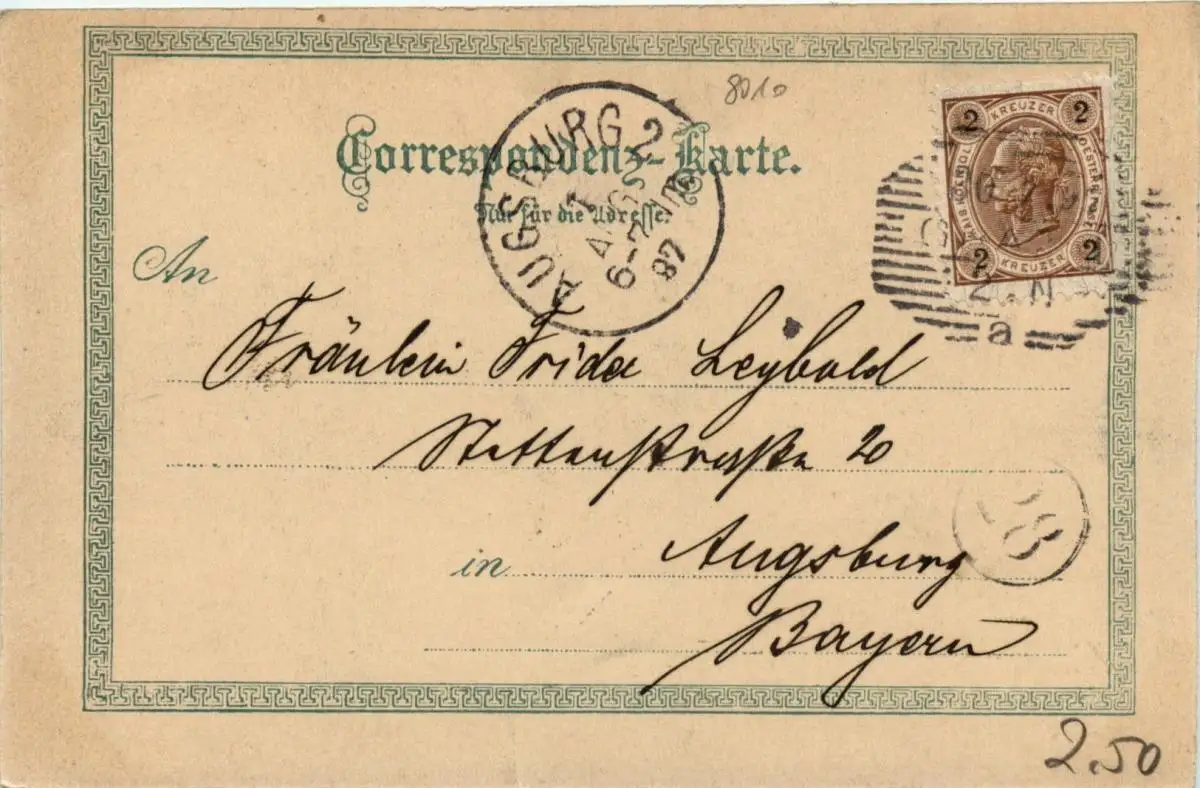 8010
Correspondenz-Karte.
Nur für die Adresse.
AUGSBURG 2
1
AUG
6-7 NM
97
2 KREUZER 2
KAIS. KÖNIGL. OESTERR. POST
2 KREUZER 2
a
An
Fräulein Frida Leybold
Stettenstraße 20
in Augsburg
Bayern
28
2.50